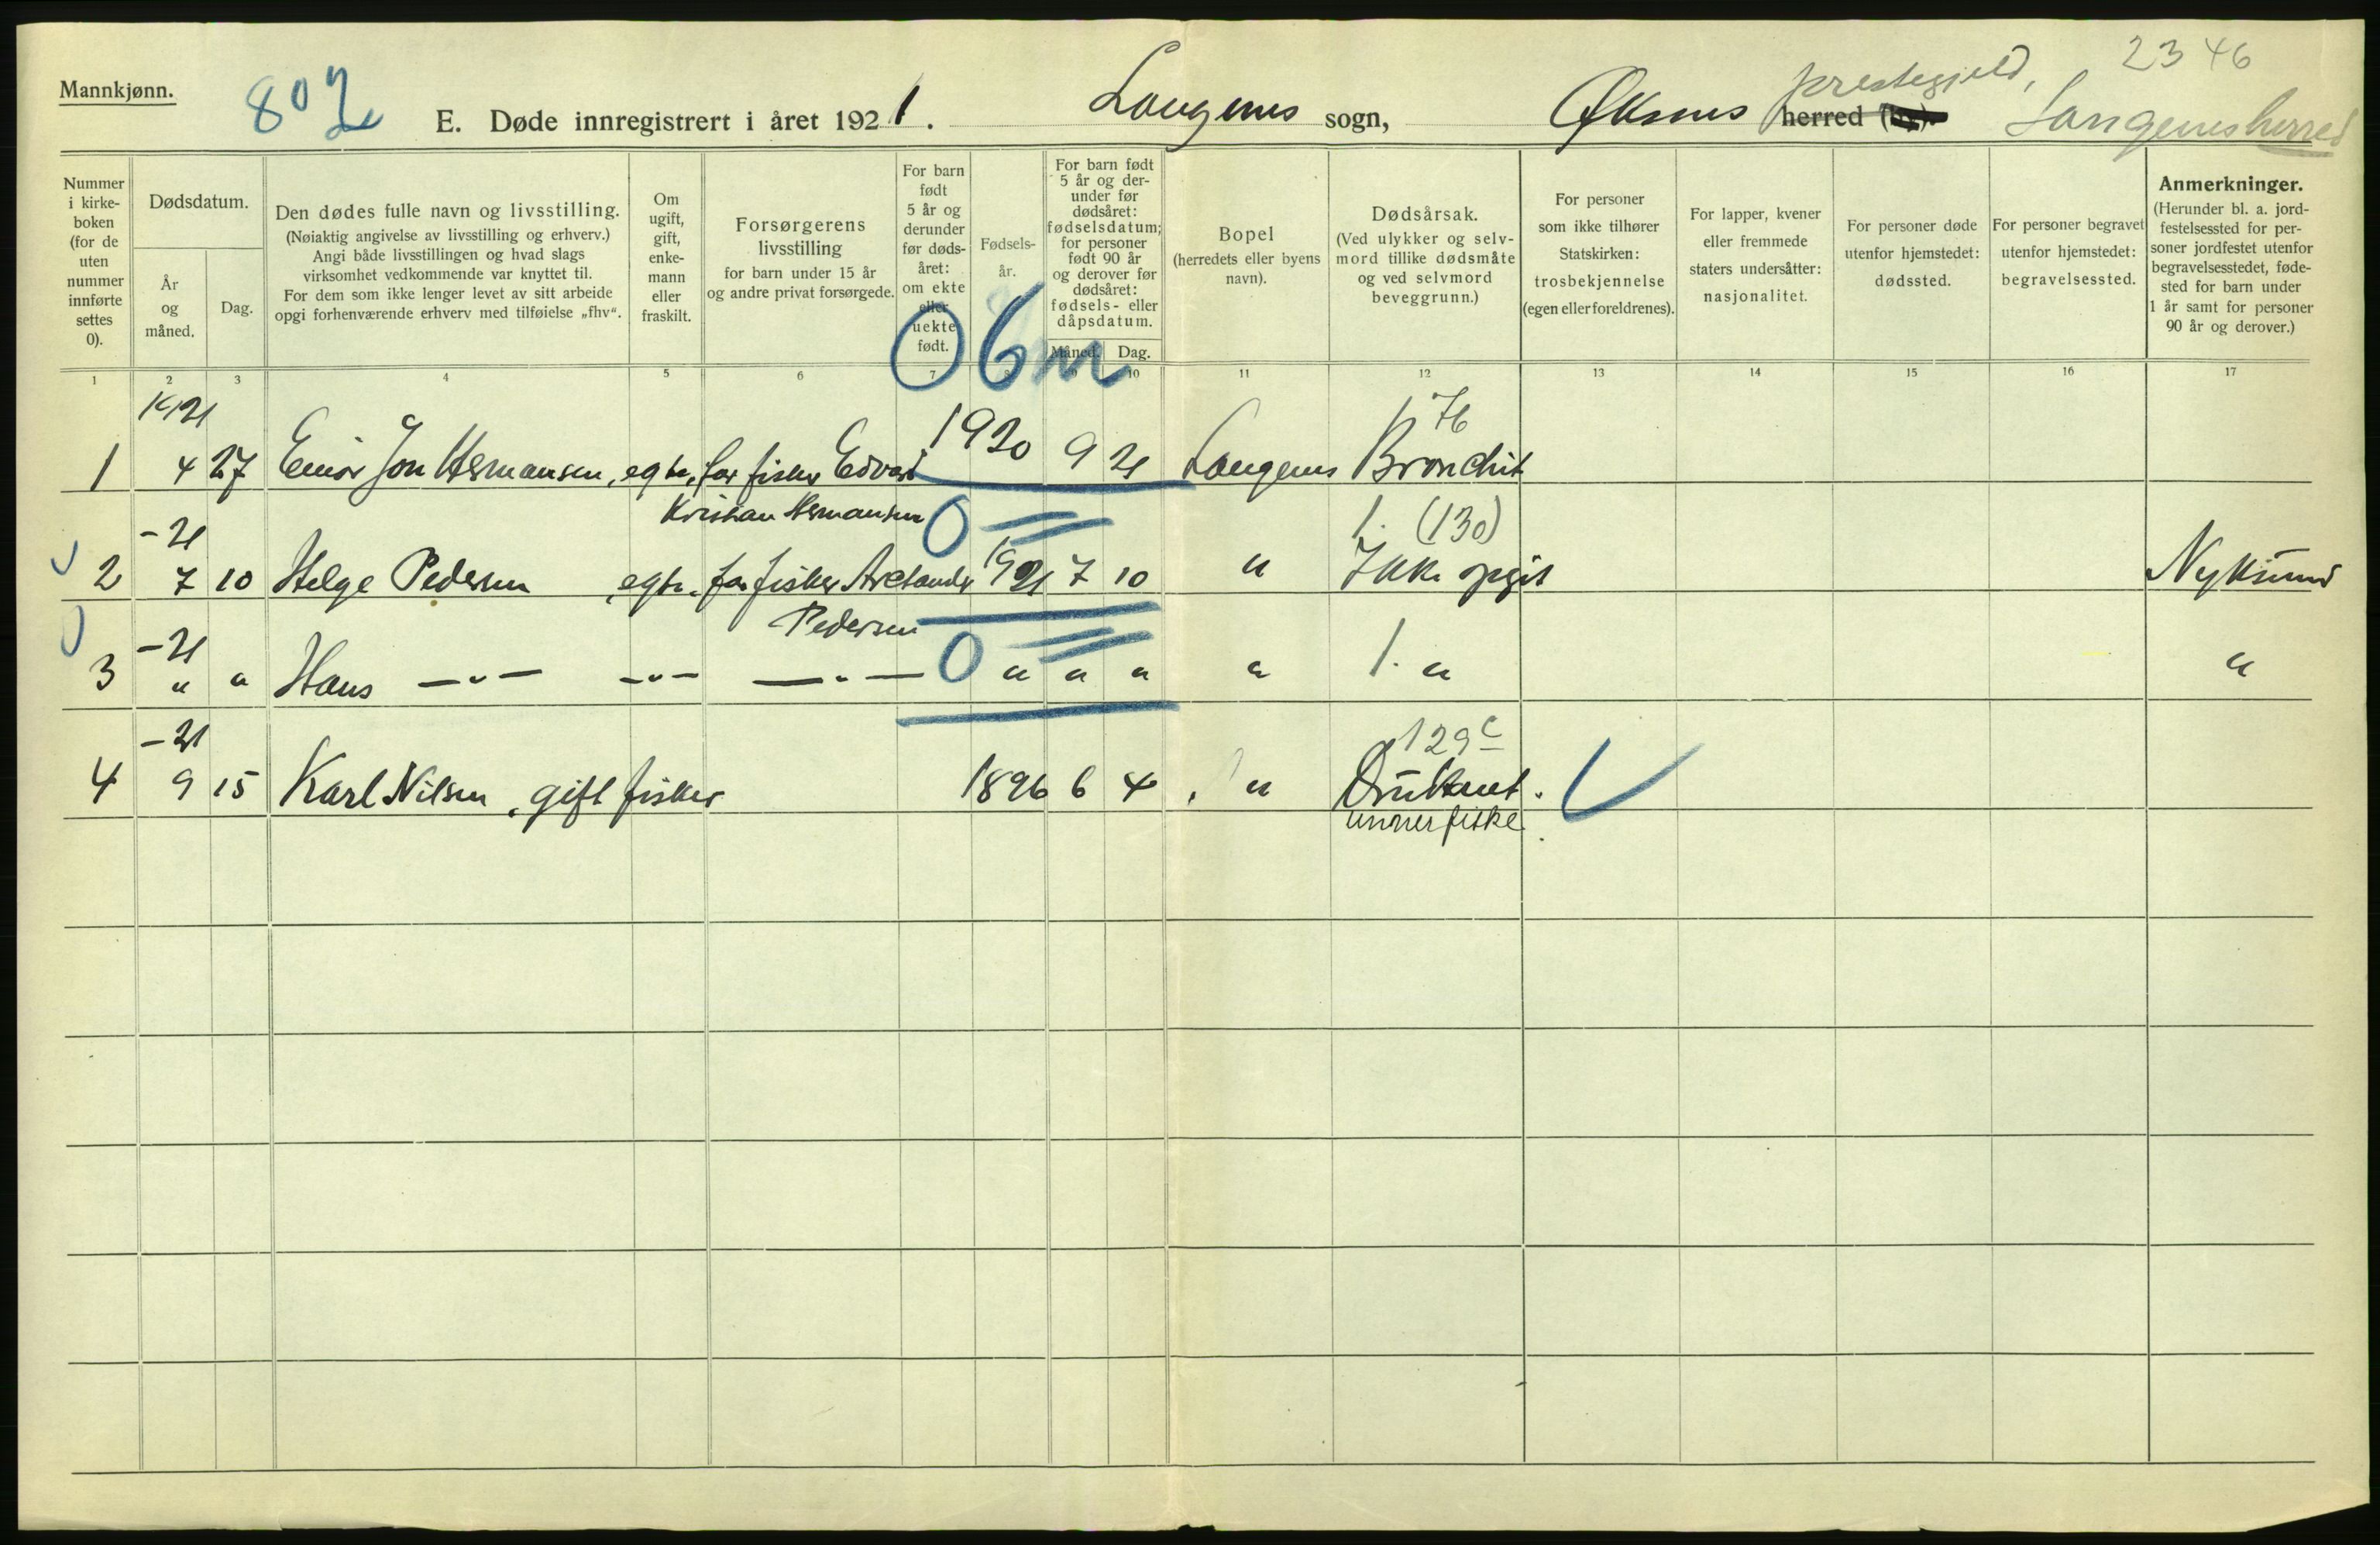 Mannkjønn.
802
E. Døde innregistrert i året 1921. Langenes sogn, Øksnes herred (by).
prestegjeld,
2346
Langenes herred
Nummer i kirke-boken (for de uten nummer innførte settes 0).
Dødsdatum.
År og måned.
Dag.
Den dødes fulle navn og livsstilling.
(Nøiaktig angivelse av livsstilling og erhverv.)
Angi både livsstillingen og hvad slags
virksomhet vedkommende var knyttet til.
For dem som ikke lenger levet av sitt arbeide
opgi forhenværende erhverv med tilføielse „fhv“.
Om ugift, gift, enke-mann eller fraskilt.
Forsørgerens livsstilling
for barn under 15 år
og andre privat forsørgede.
For barn født 5 år og derunder før døds-året: om ekte eller uekte født.
Fødsels-år.
For barn født 5 år og der-under før dødsåret: fødselsdatum; for personer født 90 år og derover før dødsåret: fødsels- eller dåpsdatum.
Måned. Dag.
Bopel
(herredets eller byens navn).
Dødsårsak.
(Ved ulykker og selv-mord tillike dødsmåte og ved selvmord beveggrunn.)
For personer som ikke tilhører Statskirken: trosbekjennelse (egen eller foreldrenes).
For lapper, kvener eller fremmede staters undersåtter: nasjonalitet.
For personer døde utenfor hjemstedet: dødssted.
For personer begravet utenfor hjemstedet: begravelsessted.
Anmerkninger.
(Herunder bl. a. jord-festelsessted for per-soner jordfestet utenfor begravelsesstedet, føde-sted for barn under 1 år samt for personer 90 år og derover.)
06 m
1 2 3 4 5 6 7 8 9 10 11 12 13 14 15 16 17
1921 76
1 4 27 Einar Jon Hermansen, egte, far fisker Edvard 1920 9 21 Langenes Bronchit
Kristian Hermansen 0
-21 1. (130)
2 7 10 Helge Pedersen egte. far fisker 1921 7 10 " Ikke opgit Nyksund
Pedersen
-21
3 " " Hans —"— —"— —"— 0 " " " " 1. " "
-21 129c
4 9 15 Karl Nilsen, gift fisker 1896 6 4 " Druknet.
under fiske.